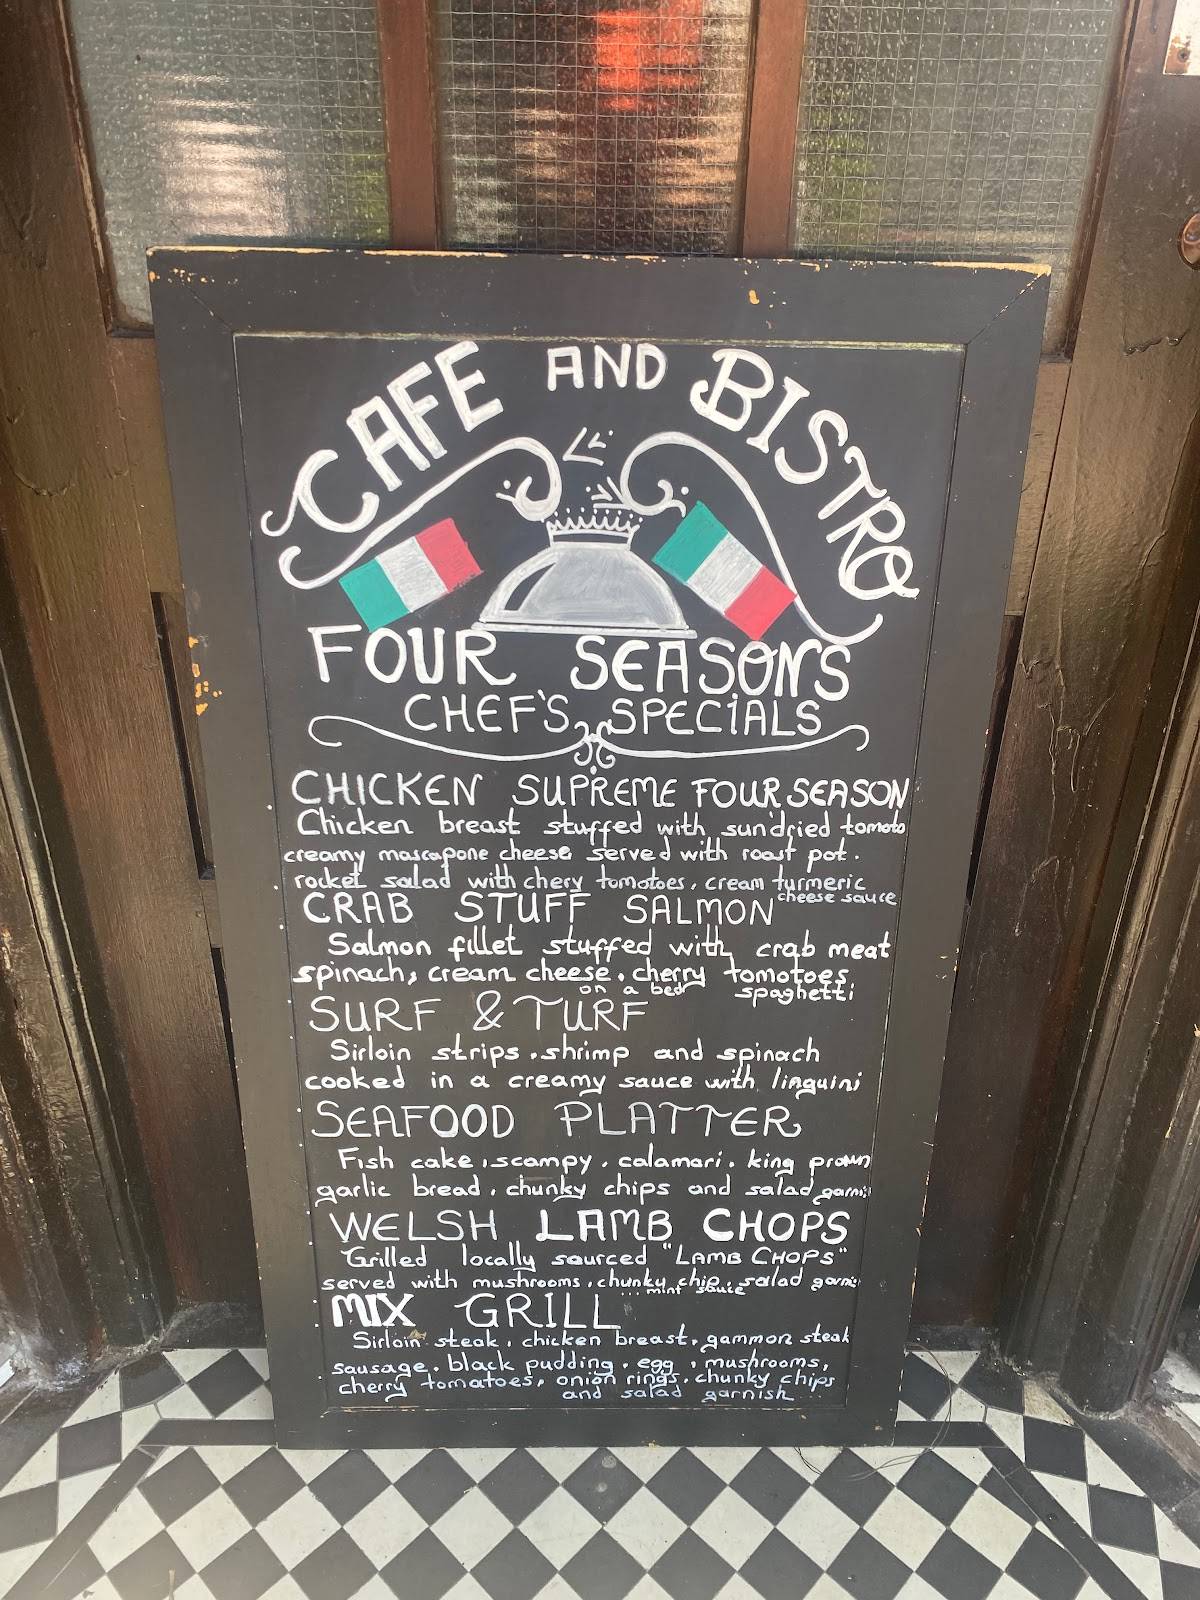 CAFE AND BISTRO
FOUR SEASONS
CHEF'S SPECIALS
CHICKEN SUPREME FOUR SEASON
Chicken breast stuffed with sun'dried tomato
creamy mascapone cheese served with roast pot.
rocket salad with chery tomotoes, cream turmeric
cheese sauce
CRAB STUFF SALMON
Salmon fillet stuffed with crab meat
spinach, cream cheese, cherry tomotoes
on a bed spaghetti
SURF & TURF
Sirloin strips, shrimp and spinach
cooked in a creamy sauce with linguini
SEAFOOD PLATTER
Fish cake, scampy, calamari, king prawn
garlic bread, chunky chips and salad garni
WELSH LAMB CHOPS
Grilled locally sourced "LAMB CHOPS"
served with mushrooms, chunky chip, salad garnis
... mint sauce
MIX GRILL
Sirloin steak, chicken breast, gammon steak
sausage, black pudding, egg, mushrooms,
cherry tomatoes, onion rings, chunky chips
and salad garnish